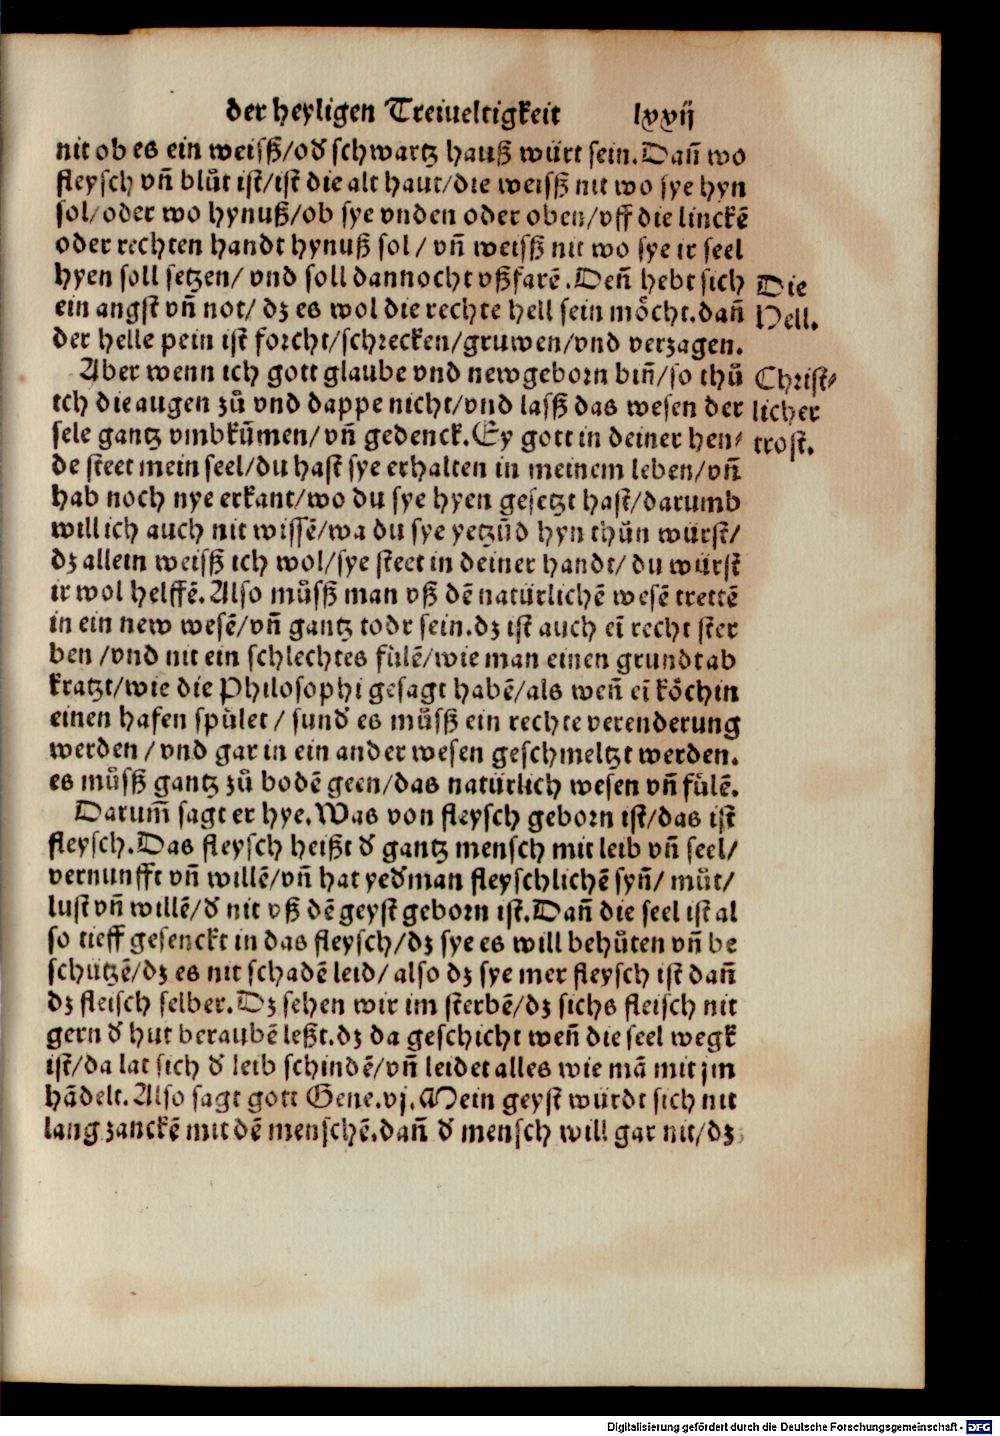 der heyligen Treiueltigkeit lxxij
nit ob es ein weiſß/od̕ ſchwartz hauß würt ſein.Dañ wo
fleyſch vñ blůt iſt/iſt die alt haut/die weiſß nit wo ſye hyn
ſol/oder wo hynuß/ob ſye vnden oder oben/vff die linckē
oder rechten handt hynuß ſol/ vñ weiſß nit wo ſye ir ſeel
hyen ſoll ſetzen/ vnd ſoll dannocht vßfarē.Deñ hebt ſich
ein angſt vñ not/ dz es wol die rechte hell ſein möcht.dañ
der helle pein iſt forcht/ſchrecken/gruwen/vnd verzagen.
Die
Hell.
Aber wenn ich gott glaube vnd newgeborn biñ/ſo thů
ich die augen zů vnd dappe nicht/vnd laſß das weſen der
ſele gantz vmbkūmen/vñ gedenck.Ey gott in deiner hen⸗
de ſteet mein ſeel/du haſt ſye erhalten in meinem leben/vñ
hab noch nye erkant/wo du ſye hyen geſetzt haſt/darumb
will ich auch nit wiſſē/wa du ſye yetzūd hyn thůn würſt/
dz allein weiſß ich wol/ſye ſteet in deiner handt/ du würſt
ir wol helffē.Alſo můſß man vß dē natürlichē weſē trettē
in ein new weſē/vñ gantz todt ſein.dz iſt auch eī recht ſter
ben /vnd nit ein ſchlechtes fülē/wie man einen grundt ab
kratzt/wie die Philoſophi geſagt habē/als weñ eī köchin
einen hafen ſpület/ ſund̕ es můſß ein rechte verenderung
werden /vnd gar in ein ander weſen geſchmeltzt werden.
es můſß gantz zů bodē geen/das natürlich weſen vñ fülē.
Chriſt⸗
licher
troſt.
Darum̃ ſagt er hye.Was von fleyſch geborn iſt/das iſt
fleyſch.Das fleyſch heißt d̕ gantz menſch mit leib vñ ſeel/
vernunfft vñ willē/vñ hat yed̕man fleyſchlichē ſyñ/ můt/
luſt vñ willē/d̕ nit vß dē geyſt geborn iſt.Dañ die ſeel iſt al
ſo tieff geſenckt in das fleyſch/dz ſye es will behůten vñ be
ſchützē/dz es nit ſchadē leid/ alſo dz ſye mer fleyſch iſt dañ
dz fleiſch ſelber.Dz ſehen wir im ſterbē/dz ſichs fleiſch nit
gern d̕ hut beraubē leßt.dz da geſchicht weñ die ſeel wegk
iſt/da lat ſich d̕ leib ſchindē/vñ leidet alles wie mā mit jm
hādelt.Alſo ſagt gott Gene.vj.Mein geyſt würdt ſich nit
lang zanckē mit dē menſchē.dañ d̕ menſch will gar nit/dz
Digitalisierung gefördert durch die Deutsche Forschungsgemeinschaft - DFG